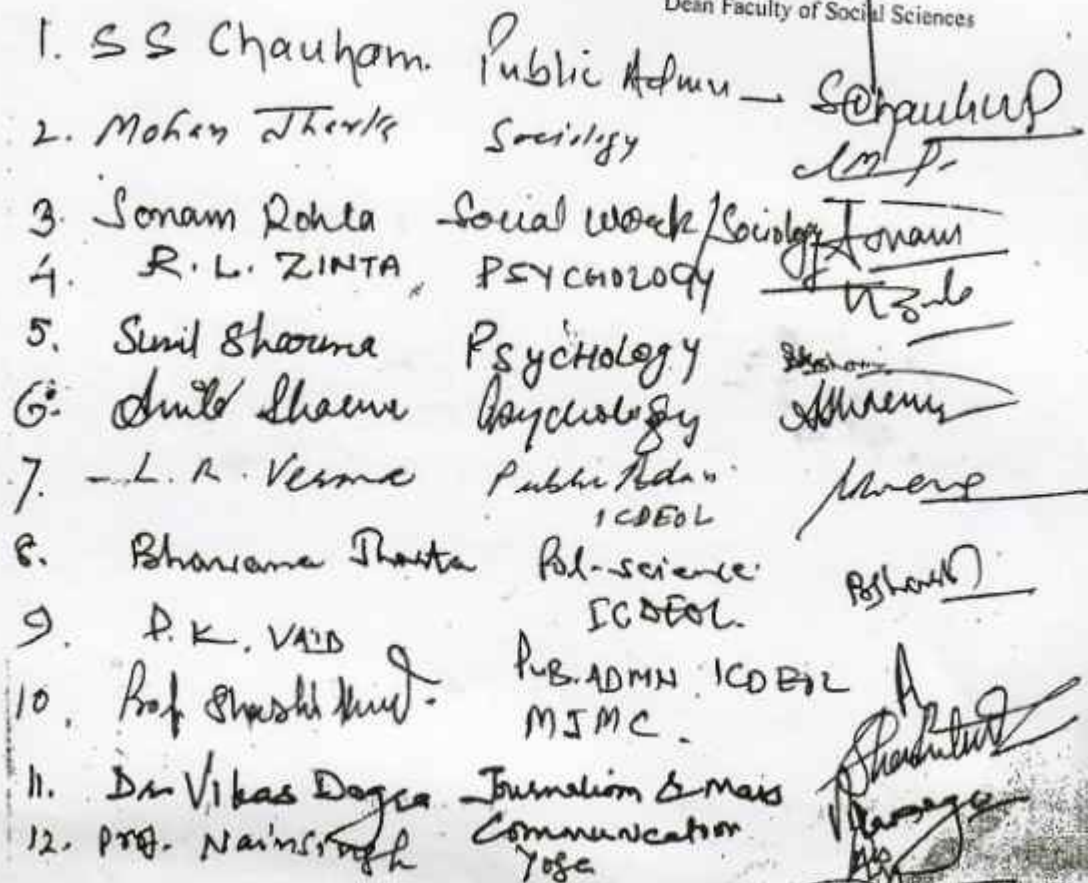 Dean Faculty of Social Sciences
1. S S Chauhan. Public Admn — SChauhan
2. Mohan Jharta Sociology
3. Sonam Rohta Social Work/Sociology Sonam
4. R. L. ZINTA, PSYCHOLOGY
5. Sunil Sharma Psychology
6. Sharma Psychology
7. L. R. Verma Public Admn
ICDEOL
8. Bhawana Jharta Pol-science
ICDEOL.
9. P. K. VAID PUB. ADMN ICDEOL
10. Prof Shashi MJMC.
11. Dr Vikas Dogra Journalism & Mass
Communication
12. Prof. Nainsingh Yoga